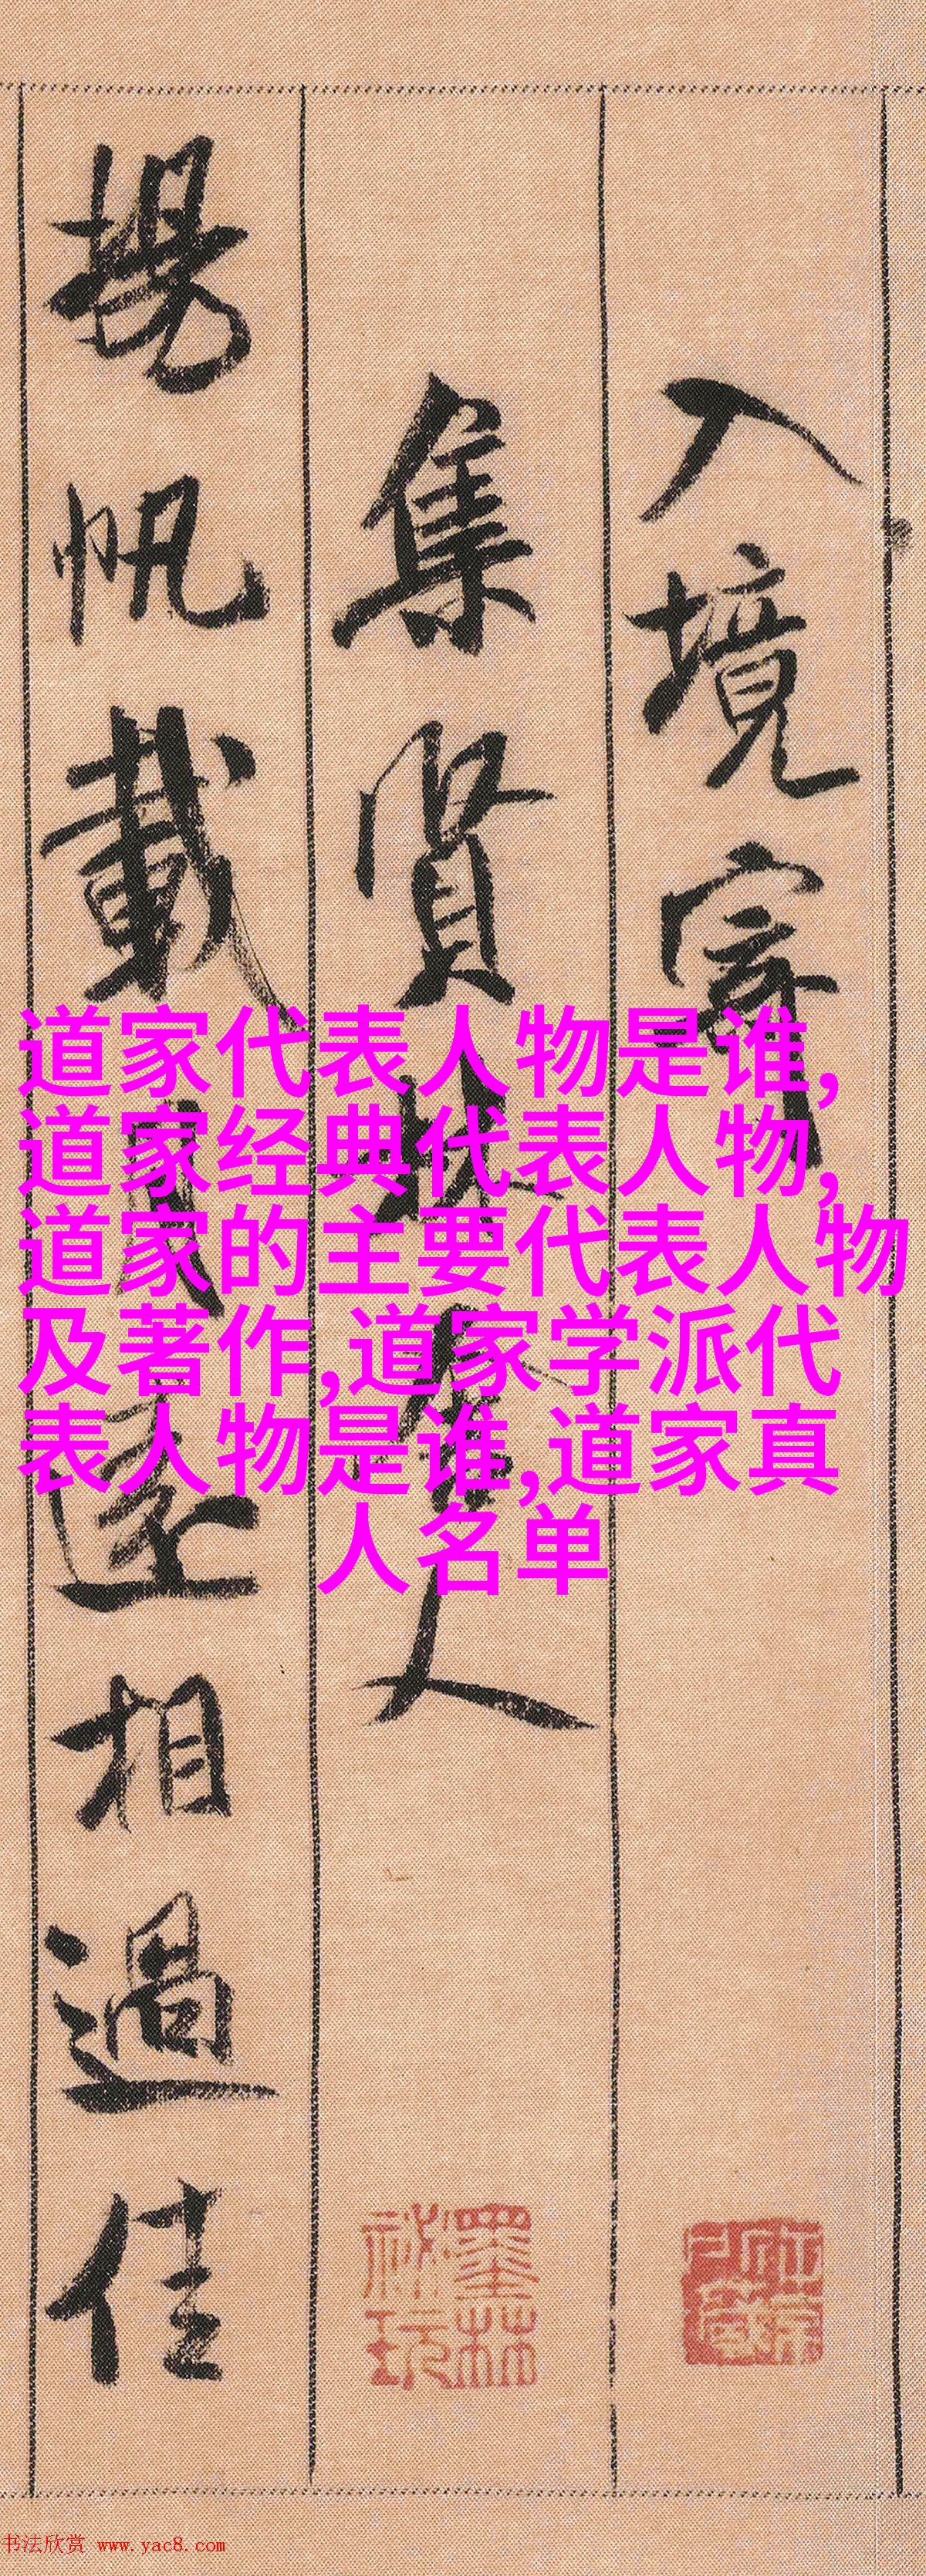 入境寄
集賢林舍人
揚帆載月遠相過佳
道家代表人物是谁,
道家经典代表人物,
道家的主要代表人物
及著作,道家学派代
表人物是谁,道家真
人名单
墨林
祕玩
书法欣赏 www.yac8.com